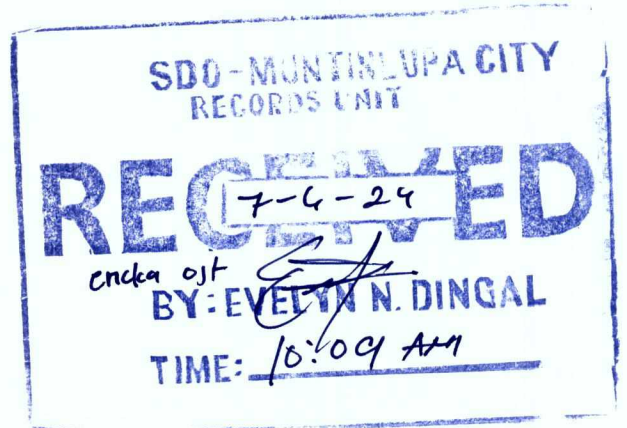 SDO-MUNTINLUPA CITY
RECORDS UNIT
RECEIVED
7-4-24
ericka ojt
BY: EVELYN N. DINGAL
TIME: 10:09 AM